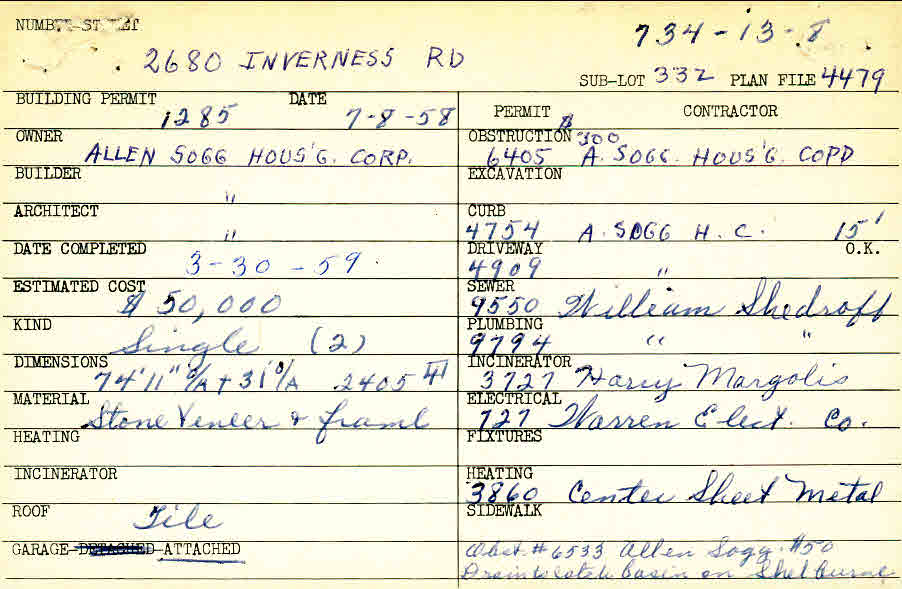 NUMBER-STREET
734-13-8
2680 INVERNESS RD
SUB-LOT 332 PLAN FILE 4479
BUILDING PERMIT DATE
1285 7-8-58
OWNER
ALLEN SOGG HOUS'G. CORP.
BUILDER
"
ARCHITECT
"
DATE COMPLETED
3-30-59.
ESTIMATED COST
$ 50,000
KIND
Single (2)
DIMENSIONS
74'11" O/A + 31' O/A 2405
MATERIAL
Stone Veneer & frame
HEATING
INCINERATOR
ROOF
Tile
GARAGE-DETACHED-ATTACHED
PERMIT CONTRACTOR
OBSTRUCTION $300
6405 A. SOGG. HOUS'G. COPD
EXCAVATION
CURB
4754 A. SOGG H. C. 15'
DRIVEWAY O.K.
4909 "
SEWER
9550 William Shedroff
PLUMBING
9794 " "
INCINERATOR
3727 Harry Margolis
ELECTRICAL
727 Warren Elect. Co.
FIXTURES
HEATING
3860 Center Sheet Metal
SIDEWALK
Obst. #6533 Allen Sogg. $50
Drain to catch basin on Shelburne